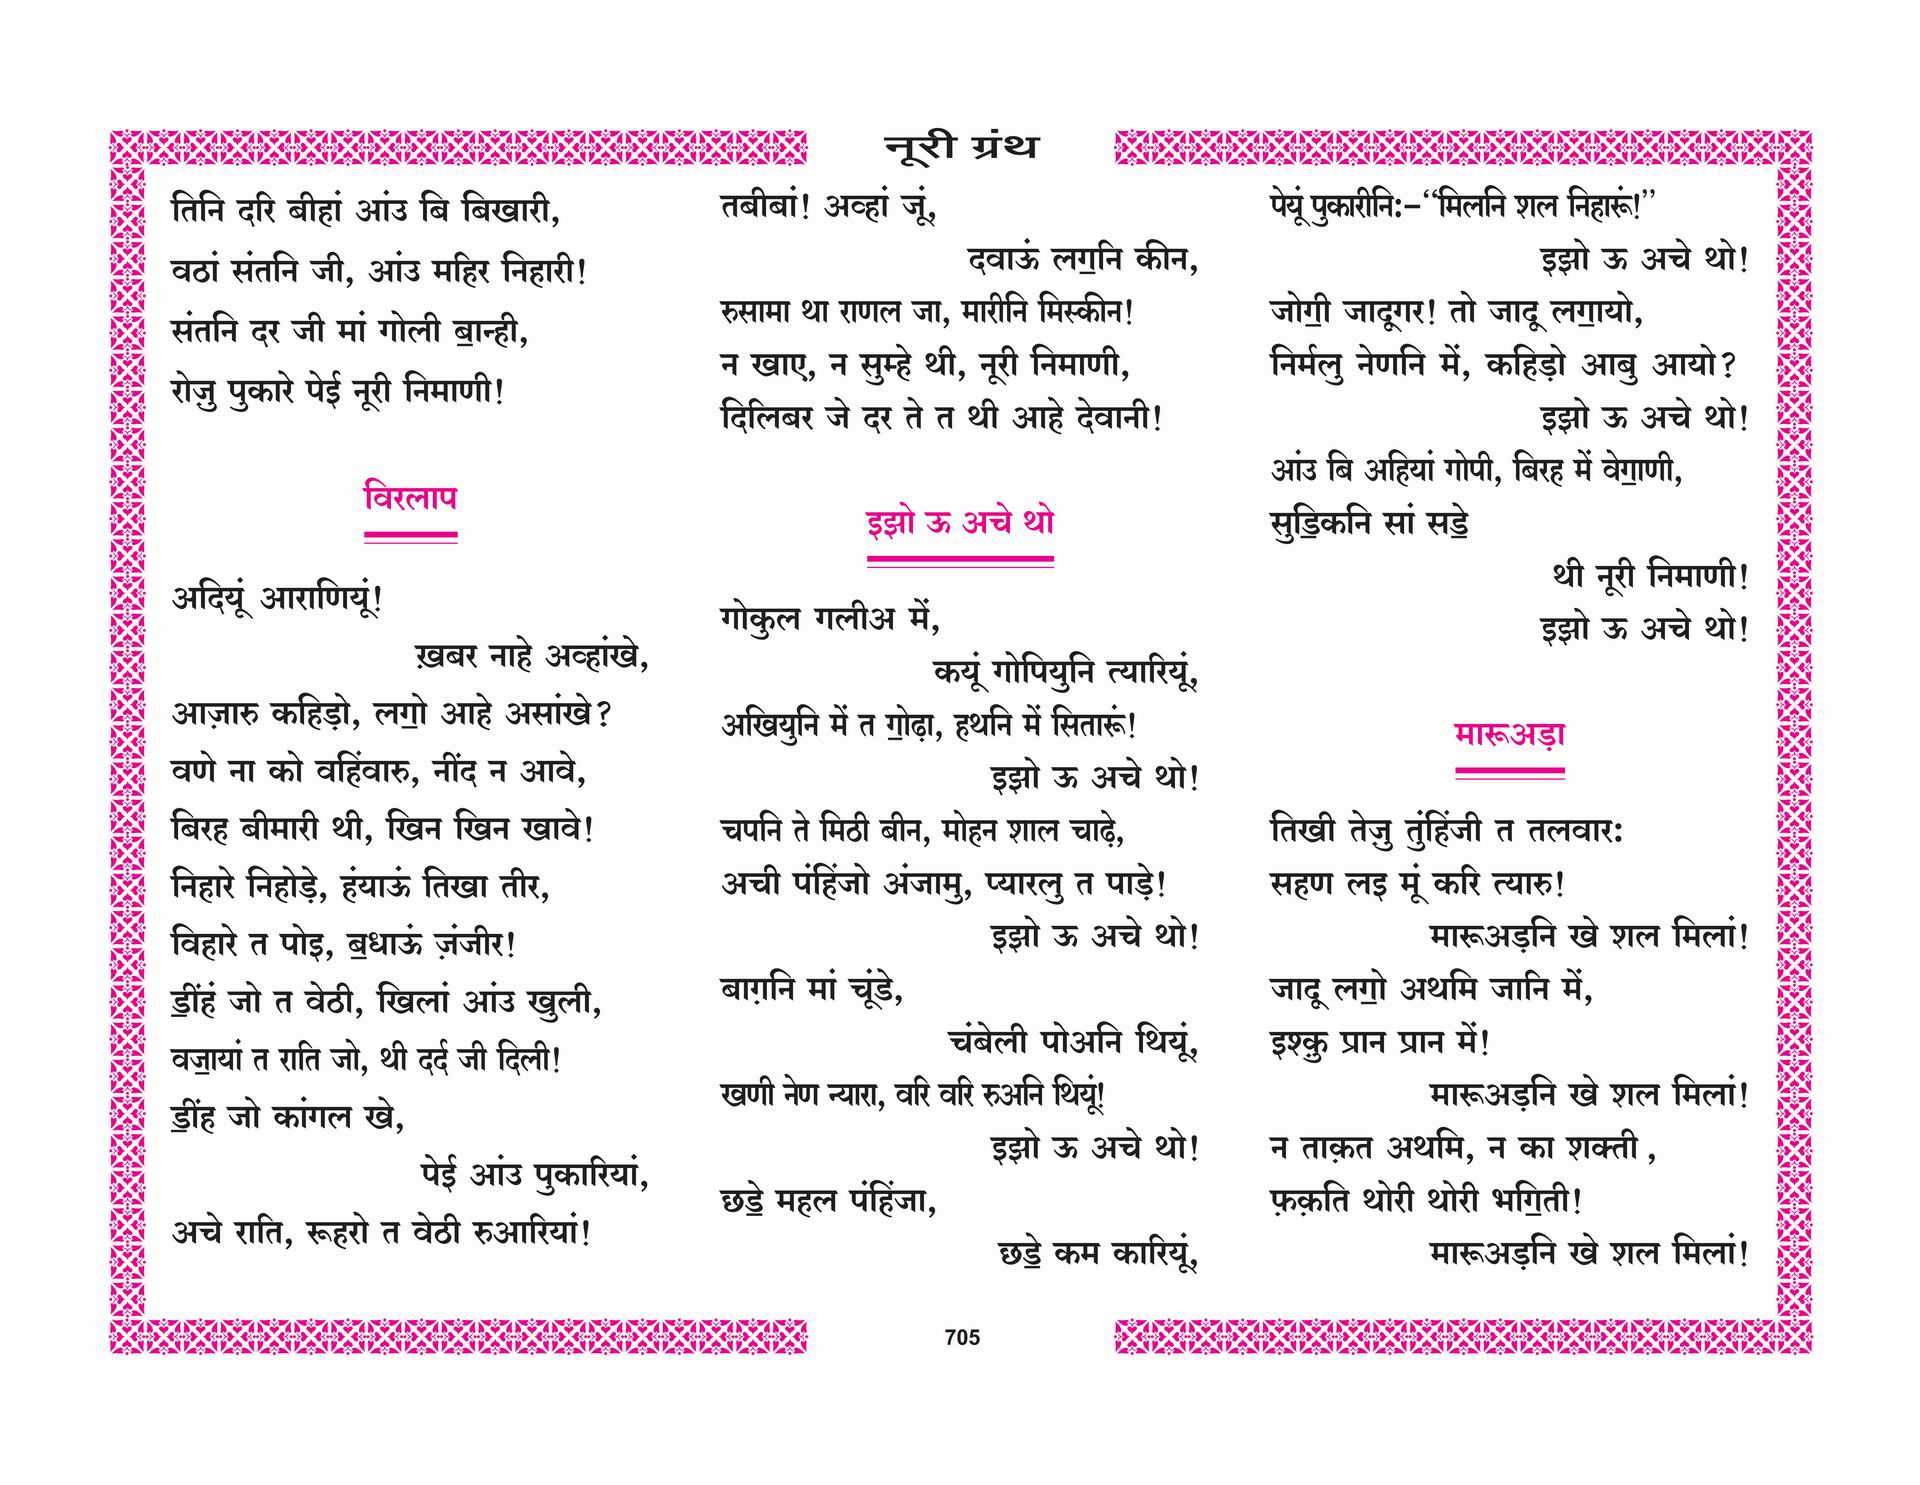 नूरी ग्रंथ
तिनि दरि बीहां आंउ बि बिखारी,
वठां संतनि जी, आंउ महिर निहारी!
संतनि दर जी मां गोली ॿान्ही,
रोज़ु पुकारे पेई नूरी निमाणी!
विरलाप
अदियूं आराणियूं!
ख़बर नाहे अव्हांखे,
आज़ारु कहिड़ो, लॻो आहे असांखे?
वणे ना को वहिंवारु, नींद न आवे,
बिरह बीमारी थी, खिन खिन खावे!
निहारे निहोड़े, हंयाऊं तिखा तीर,
विहारे त पोइ, ॿधाऊं ज़ंजीर!
ॾींहं जो त वेठी, खिलां आंउ खुली,
वॼायां त राति जो, थी दर्द जी दिली!
ॾींह जो कांगल खे,
पेई आंउ पुकारियां,
अचे राति, रूहरो त वेठी रुआरियां!
तबीबां! अव्हां जूं,
दवाऊं लॻनि कीन,
रुसामा था राणल जा, मारीनि मिस्कीन!
न खाए, न सुम्हे थी, नूरी निमाणी,
दिलिबर जे दर ते त थी आहे देवानी!
इझो ऊ अचे थो
गोकुल गलीअ में,
कयूं गोपियुनि त्यारियूं,
अखियुनि में त ॻोढ़ा, हथनि में सितारूं!
इझो ऊ अचे थो!
चपनि ते मिठी बीन, मोहन शाल चाढ़े,
अची पंहिंजो अंजामु, प्यारलु त पाड़े!
इझो ऊ अचे थो!
बाग़नि मां चूंडे,
चंबेली पोअनि थियूं,
खणी नेण न्यारा, वरि वरि रुअनि थियूं!
इझो ऊ अचे थो!
छॾे महल पंहिंजा,
छॾे कम कारियूं,
पेयूं पुकारीनि:-“मिलनि शल निहारूं!”
इझो ऊ अचे थो!
जोॻी जादूगर! तो जादू लॻायो,
निर्मलु नेणनि में, कहिड़ो आबु आयो?
इझो ऊ अचे थो!
आंउ बि अहियां गोपी, बिरह में वेॻाणी,
सुॾिकनि सां सॾे
थी नूरी निमाणी!
इझो ऊ अचे थो!
मारूअड़ा
तिखी तेज़ु तुंहिंजी त तलवार:
सहण लइ मूं करि त्यारु!
मारूअड़नि खे शल मिलां!
जादू लॻो अथमि जानि में,
इश्क़ु प्रान प्रान में!
मारूअड़नि खे शल मिलां!
न ताक़त अथमि, न का शक्ती ,
फ़क़ति थोरी थोरी भॻिती!
मारूअड़नि खे शल मिलां!
705